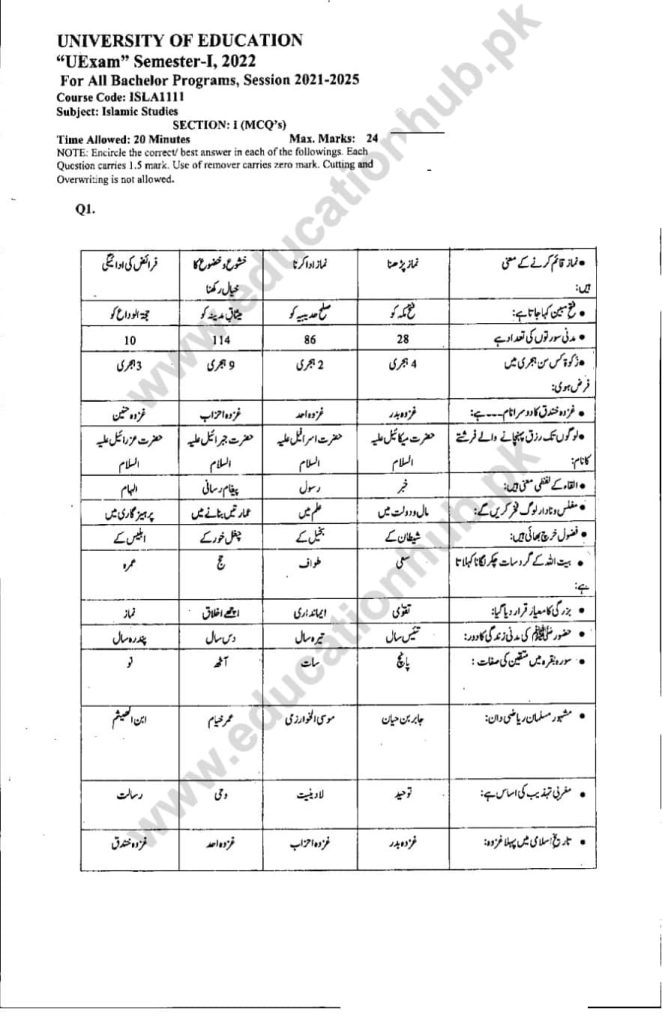 UNIVERSITY OF EDUCATION
“UExam” Semester-I, 2022
For All Bachelor Programs, Session 2021-2025
Course Code: ISLA1111
Subject: Islamic Studies
SECTION: I (MCQ's)
Time Allowed: 20 Minutes Max. Marks: 24
NOTE: Encircle the correct/ best answer in each of the followings. Each
Question carries 1.5 mark. Use of remover carries zero mark. Cutting and
Overwriting is not allowed.
Q1.
• نماز قائم کرنے کے معنی نماز پڑھنا نماز ادا کرنا خشوع و خضوع کا فرائض کی ادائیگی
ہیں: خیال رکھنا
• فتح مبین کہا جاتا ہے: فتح مکہ کو صلح حدیبیہ کو میثاق مدینہ کو حجۃ الوداع کو
• مدنی سورتوں کی تعداد ہے 28 86 114 10
• زکوٰۃ کس سن ہجری میں 4 ہجری 2 ہجری 9 ہجری 3 ہجری
فرض ہوئی:
• غزوہ خندق کا دوسرا نام ---- ہے: غزوہ بدر غزوہ احد غزوہ احزاب غزوہ حنین
• لوگوں تک رزق پہنچانے والے فرشتے حضرت میکائیل علیہ حضرت اسرافیل علیہ حضرت جبرائیل علیہ حضرت عزرائیل علیہ
کا نام: السلام السلام السلام السلام
• القاء کے لفظی معنی ہیں: خبر رسول پیغام رسانی الہام
• مفلس و نادار لوگ فخر کریں گے: مال و دولت میں علم میں عمارتیں بنانے میں پرہیز گاری میں
• فضول خرچ بھائی ہیں: شیطان کے بخیل کے چغل خور کے ابلیس کے
• بیت اللہ کے گرد سات چکر لگانا کہلاتا سعی طواف حج عمرہ
ہے:
• بزرگی کا معیار قرار دیا گیا: تقویٰ ایمانداری اچھے اخلاق نماز
• حضور ﷺ کی مدنی زندگی کا دور: تئیس سال تیرہ سال دس سال پندرہ سال
• سورہ بقرہ میں متقین کی صفات: پانچ سات آٹھ نو
• مشہور مسلمان ریاضی دان: جابر بن حیان موسیٰ الخوارزمی عمر خیام ابن الھیثم
• مغربی تہذیب کی اساس ہے: توحید لادینیت وحی رسالت
• تاریخ اسلامی میں پہلا غزوہ: غزوہ بدر غزوہ احزاب غزوہ احد غزوہ خندق
www.educationhub.pk
www.educationhub.pk